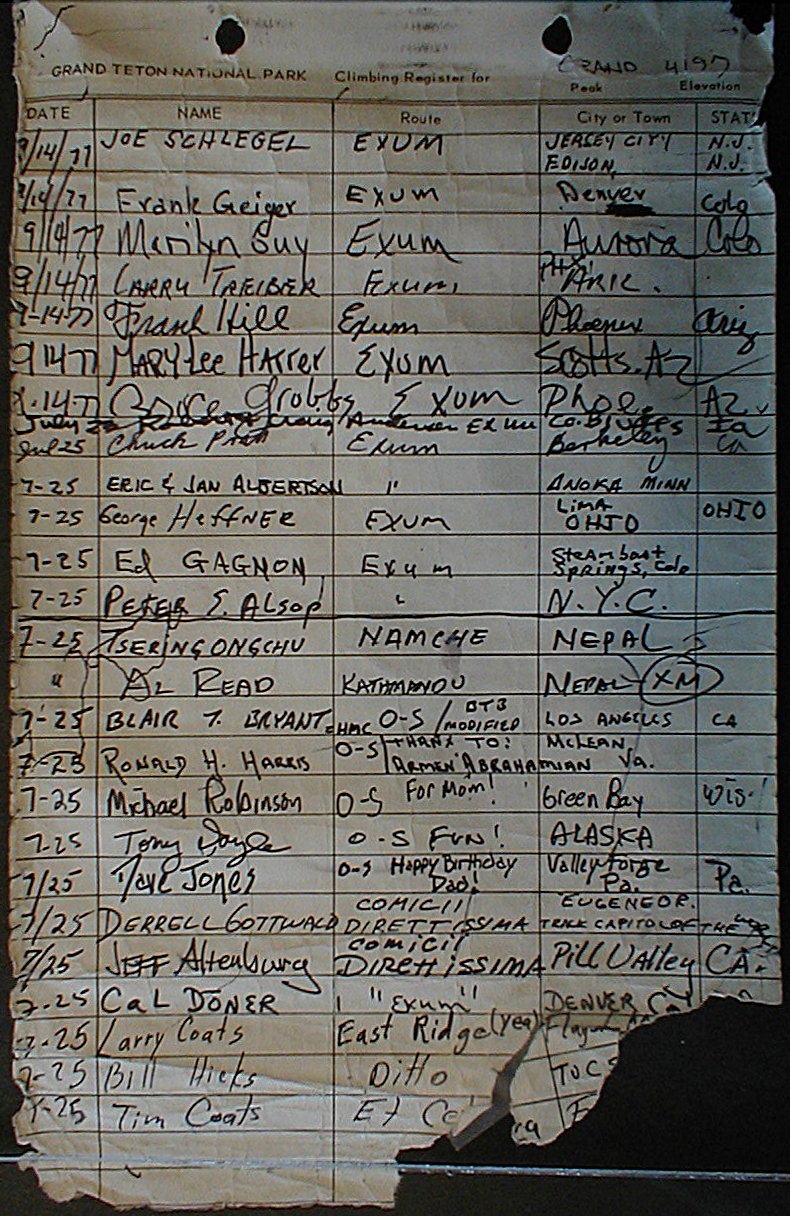 GRAND TETON NATIONAL PARK Climbing Register for GRAND 4197
Peak Elevation
DATE NAME Route City or Town STAT
9/14/77 JOE SCHLEGEL EXUM JERSEY CITY N.J.
EDISON, N.J.
9/14/77 Frank Geiger EXUM Denver Colo
9/14/77 Marilyn Guy Exum Aurora Colo
9/14/77 LARRY TREIBER Exum, PHX, ARIZ.
9-14-77 Frank Hill Exum Phoenix Ariz
9 14 77 MARYLee HARRer EXUM Scotts. AZ
9.14-77 Bruce Grubbs Exum Phoe. AZ.
July Craig Anderson Exum Co. Bluffs Ia
Jul 25 Chuck Exum Berkeley Ca
7-25 ERIC & JAN ALBERTSON " ANOKA MINN
7-25 George HeffNER EXUM LIMA OHIO OHIO
7-25 Ed GAGNON Exum Steamboat Springs, Colo
7-25 PETER S. Alsop " N.Y.C.
7-25 TSERING ONGCHU NAMCHE NEPAL
" AL READ KATHMANDU NEPAL (XM)
7-25 BLAIR T. BRYANT =HMC O-S / BTB MODIFIED LOS ANGELES CA
7-25 RONALD H. HARRIS O-S THANX TO: ARMEN ABRAHAMIAN McLEAN, Va.
7-25 Michael Robinson O-S For Mom! Green Bay WIS.
7-25 Tony Doyle O-S FUN! ALASKA
7/25 Dave Jones O-S Happy Birthday Dad! Valley Forge Pa. Pa.
7/25 DERRELL GOTTWALD COMICII DIRETTISSIMA EUGENE OR. TRACK CAPITOL OF THE
7/25 JEFF Altenburg COMICII DIRettISSIMA Pill Valley CA.
7-25 CaL DONER "Exum" DENVER
7-25 Larry Coats East Ridge (yea)
7-25 Bill Hicks Ditto TUCS
7-25 Tim Coats Et Ce